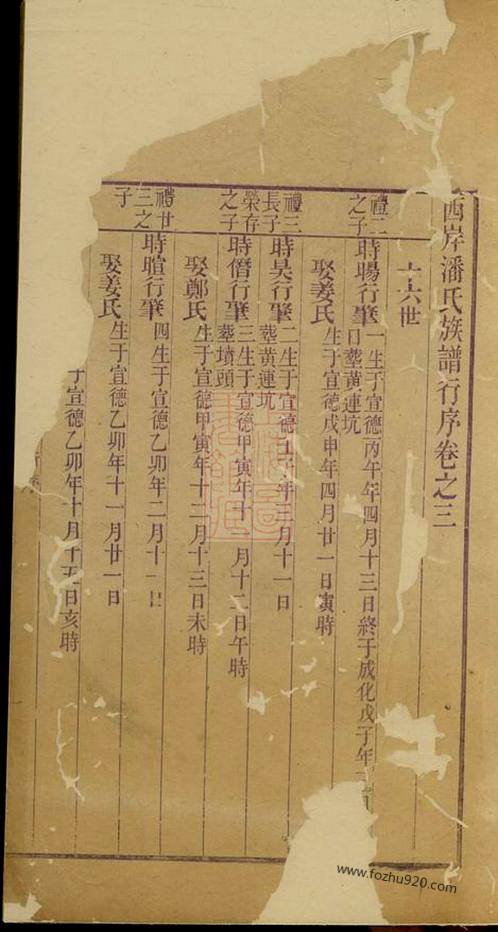 西岸潘氏族譜行序卷之三
十六世
禮二之子
時暘行肇一生于宣德丙午年四月十三日終于成化戊子年
日塟黄連坑
娶姜氏生于宣德戊申年四月廿一日寅時
禮三長子
時昊行肇二生于宣德壬子年三月十一日
塟黄連坑
榮存之子
時僭行肇三生于宣德甲寅年十二月十二日午時
塟墳頭
娶鄭氏生于宣德甲寅年十二月十三日未時
禮廿三之子
時暄行肇四生于宣德乙卯年二月十一日
娶姜氏生于宣德乙卯年十一月廿一日
于宣德乙卯年十月十五日亥時
www.fozhu920.com